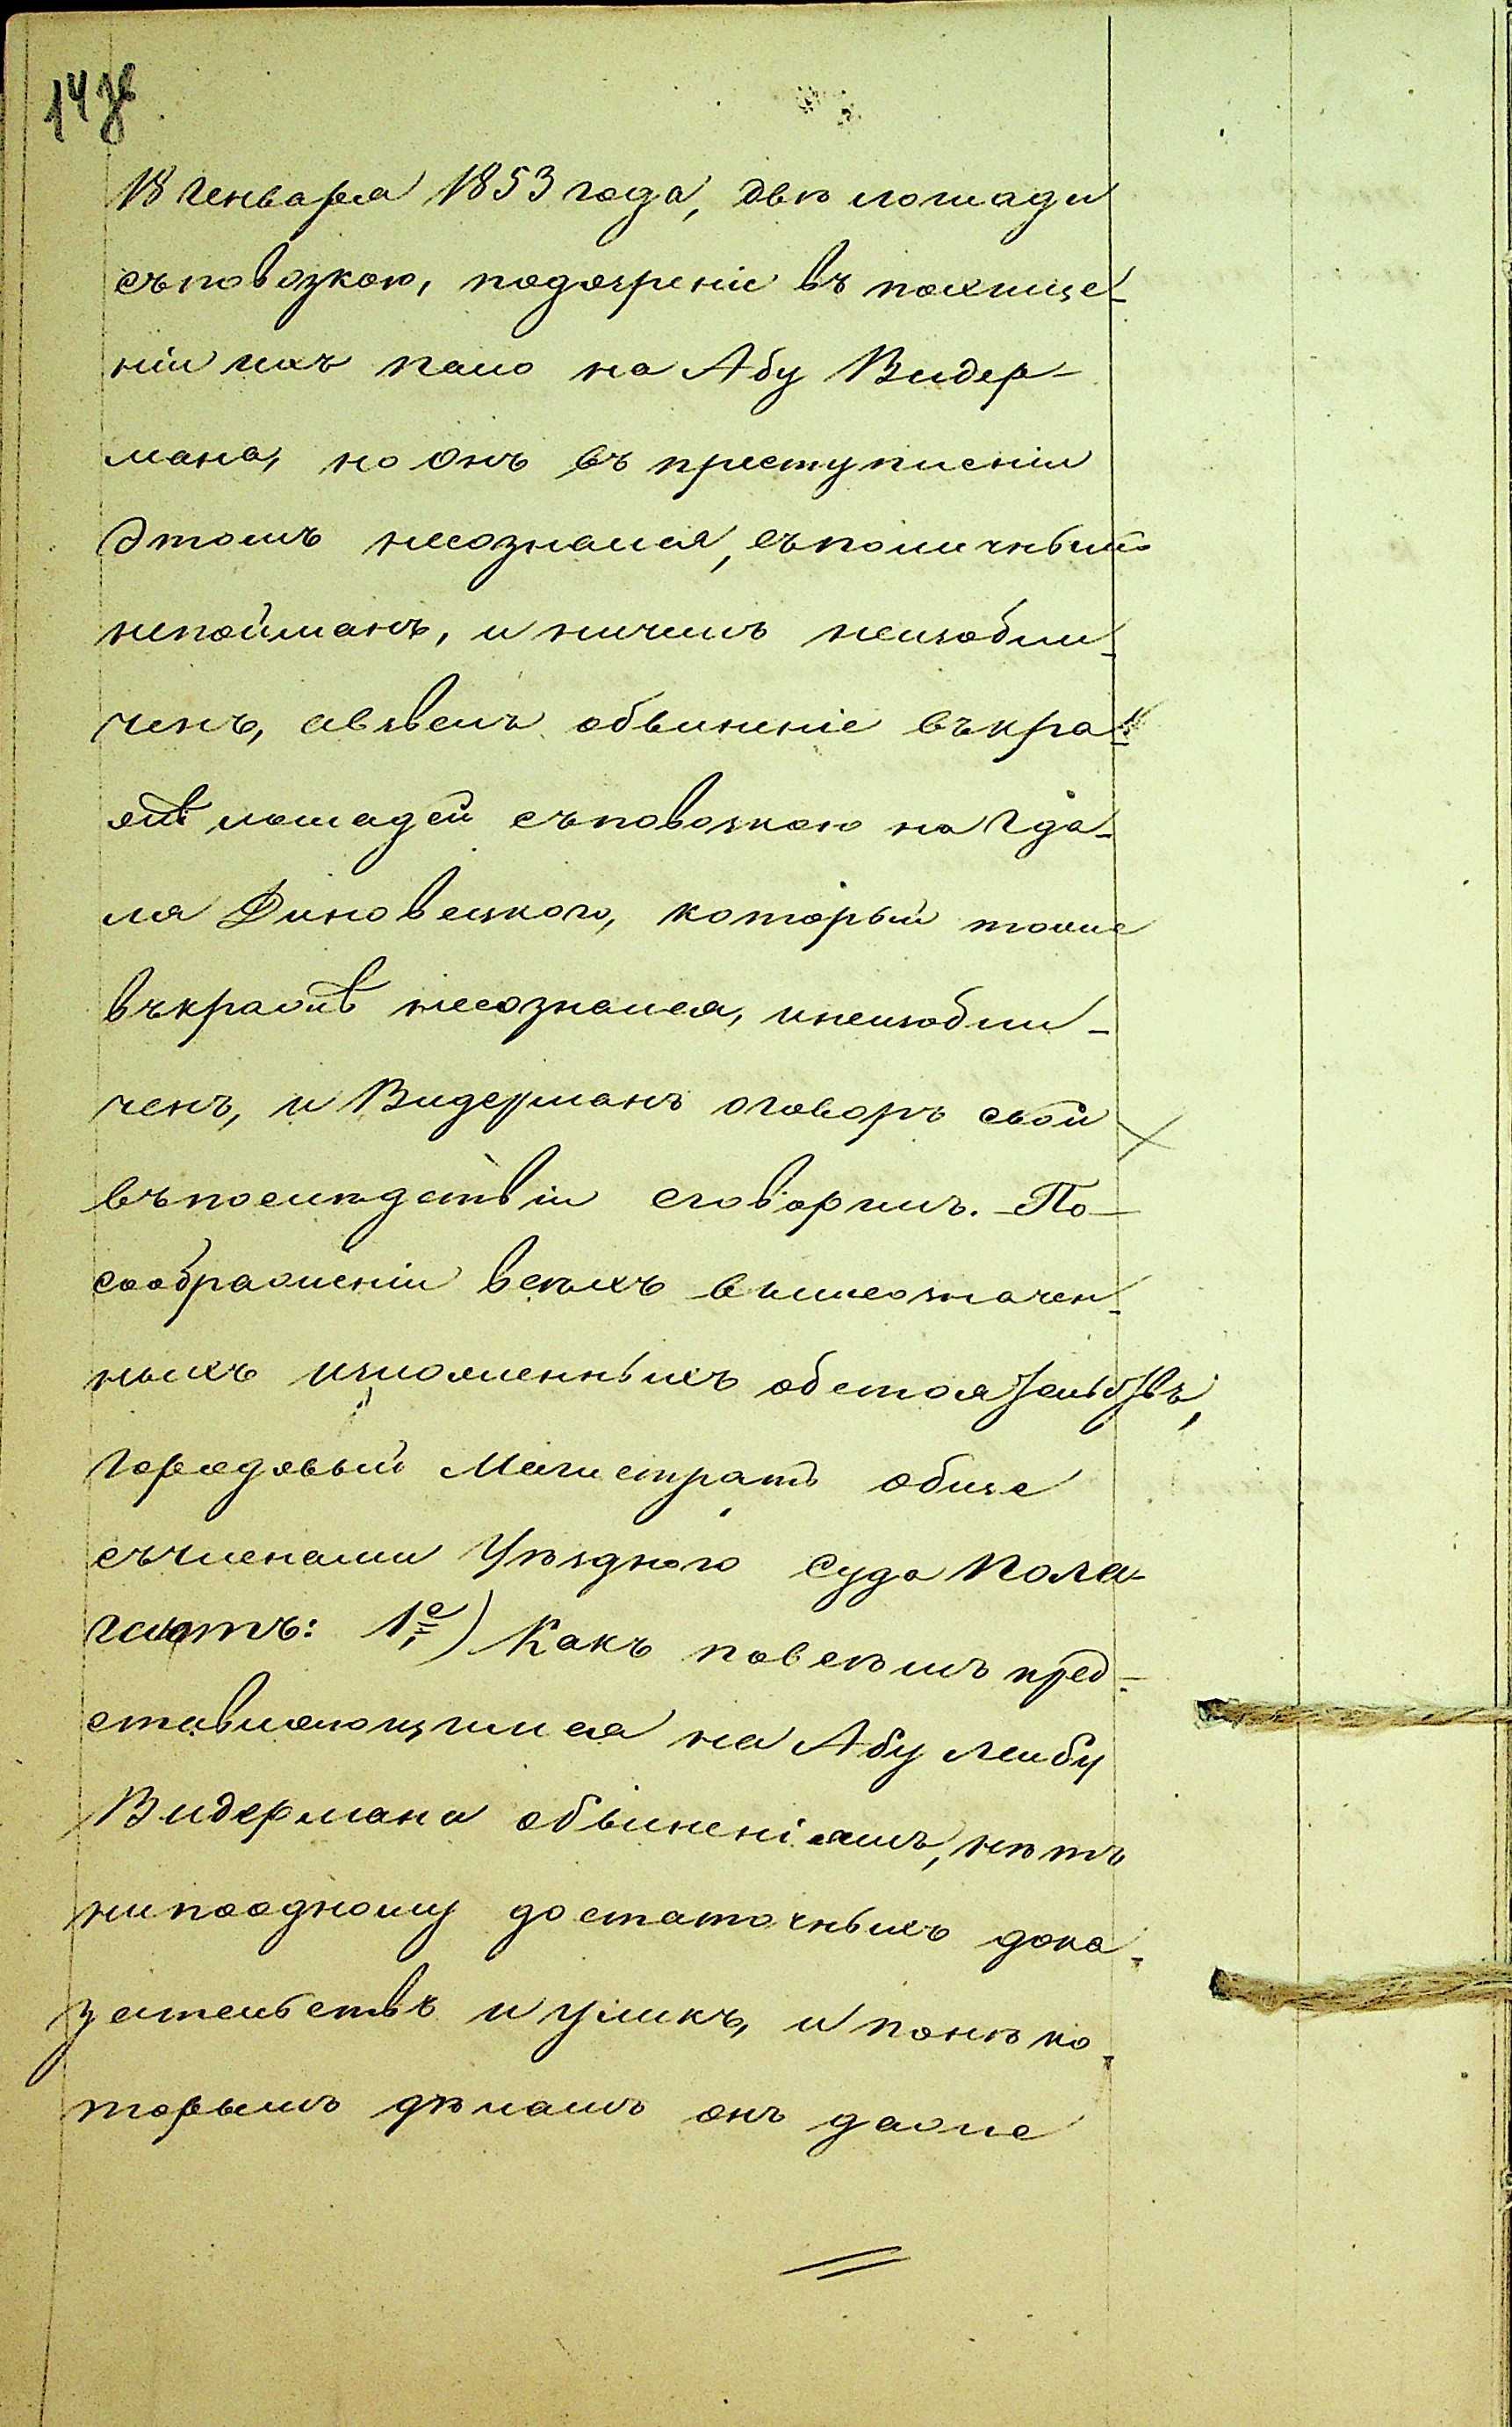 18 Генваря 1853 года, двѣ лошади
съповозкою, подозреніе въ похище-
ніи ихъ пало на Абу Видер-
мана, но онъ въ преступленіи
этомъ несознался, съполичнымъ
непойманъ, и ничемъ неизобли-
ченъ, авзвелъ обвиненіе въкра-
жѣ лошадей съповозкою на Гда-
ля Диновецкого, который тоже
въкражѣ несознался, инеизобли-
ченъ, и Видерманъ оговоръ свой
въпослѣдствіи сговорилъ. По
соображеніи всѣхъ вышеозначен-
ныхъ изложенныхъ обстоятельствъ,
городовый Магистратъ обще
съчленами Уѣзднаго суда пола-
гаютъ: 1е) Какъ повсѣмъ пред-
ставляющимся на Абу Лейбу
Видермана обвиненіямъ, нѣтъ
нипоодному достаточныхъ дока-
зательствъ и уликъ, и понѣко-
торымъ дѣламъ онъ даже